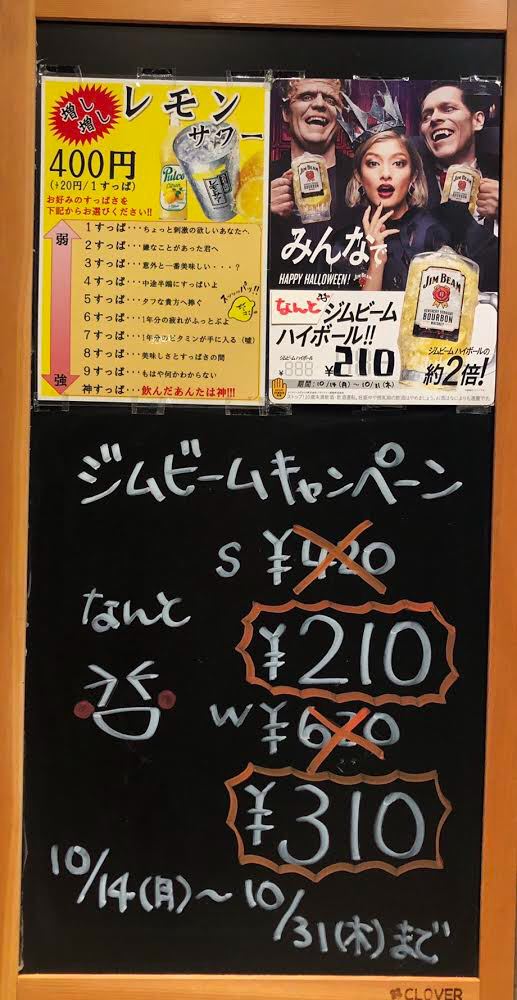 増し
増し
レモン
サワー
400円
(+20円/1すっぱ)
お好みのすっぱさを
下記からお選びください!!
弱
1すっぱ・・・ちょっと刺激の欲しいあなたへ
2すっぱ・・・嫌なことがあった君へ
3すっぱ・・・意外と一番美味しい・・・・?
4すっぱ・・・中途半端にすっぱいよ
5すっぱ・・・タフな貴方へ捧ぐ
6すっぱ・・・1年分の疲れがふっとぶよ
7すっぱ・・・1年分のビタミンが手に入る(嘘)
8すっぱ・・・美味しさとすっぱさの間
9すっぱ・・・もはや何かわからない
神すっぱ・・・飲んだあんたは神!!!
強
Pulco
JIM BEAM
BOURBON
みんなで
HAPPY HALLOWEEN!
JIM BEAM
なんと
ジムビーム
ハイボール!!
ジムビームハイボール
¥210
期間:10/14(月)~10/31(木)
JIM BEAM
KENTUCKY STRAIGHT
BOURBON
WHISKEY
ジムビームハイボールの
約2倍!
ジムビームキャンペーン
S ¥420
なんと
¥210
W ¥620
¥310
10/14(月)~10/31(木)まで
CLOVER